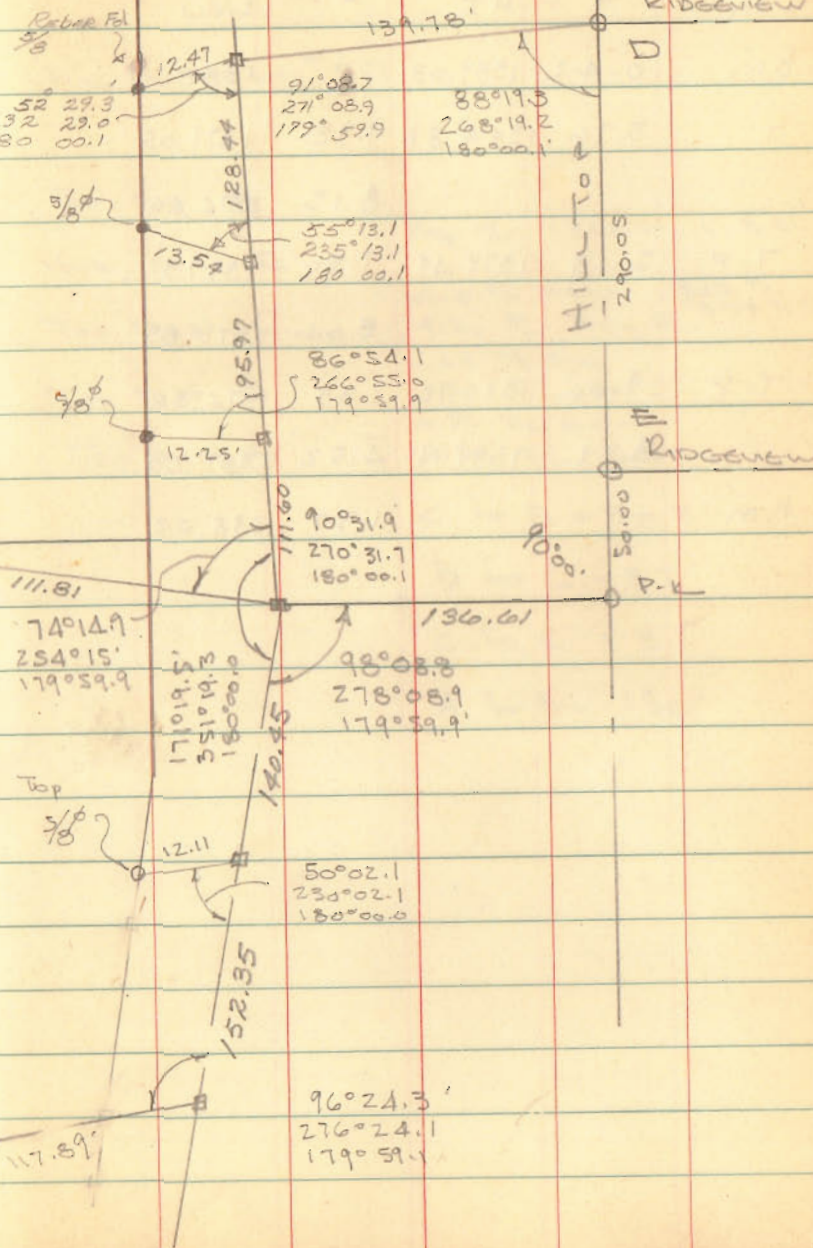 RIDGEVIEW
Rebar Fd
5/8
139.78'
D
12.47
91°08.7
271°08.9
179°59.9
88°19.3
268°19.2
180°00.1
52 29.3
32 29.0
80 00.1
128.44
5/8ϕ
55°13.1
235°13.1
180 00.1
13.52
HILL TOP
290.05
195.97
86°54.1
266°55.0
179°59.9
5/8ϕ
12.25'
E
RIDGEVIEW
111.60
90°31.9
270°31.7
180°00.1
90°00.
50.00
P.K
111.81
136.61
74°14.9
254°15'
179°59.9
171°19.5'
351°19.3
180°00.0
98°08.8
278°08.9
179°59.9'
140.45
Top
5/8ϕ
12.11
50°02.1
230°02.1
180°00.0
152.35
96°24.3'
276°24.1
179°59.1
117.89'